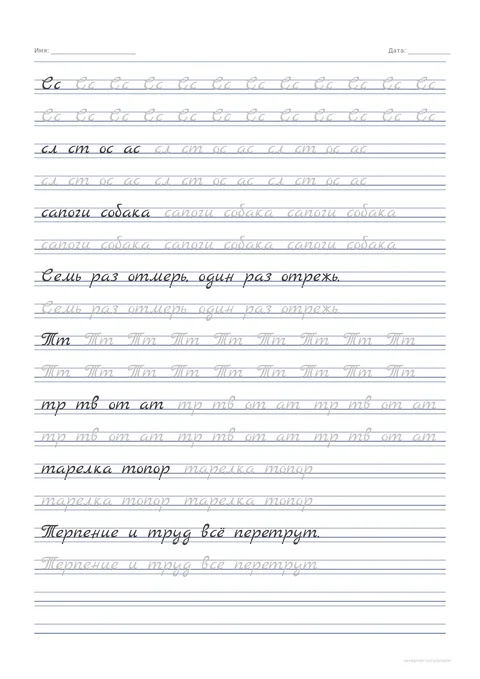 Имя: Дата:
Сс Сс Сс Сс Сс Сс Сс Сс Сс Сс Сс Сс
Сс Сс Сс Сс Сс Сс Сс Сс Сс Сс Сс Сс
сл ст ос ас сл ст ос ас сл ст ос ас
сл ст ос ас сл ст ос ас сл ст ос ас
сапоги собака сапоги собака сапоги собака
сапоги собака сапоги собака сапоги собака
Семь раз отмерь, один раз отрежь.
Семь раз отмерь один раз отрежь
Тт Тт Тт Тт Тт Тт Тт Тт Тт
Тт Тт Тт Тт Тт Тт Тт Тт Тт
тр тв от ат тр тв от ат тр тв от ат
тр тв от ат тр тв от ат тр тв от ат
тарелка топор тарелка топор
тарелка топор тарелка топор
Терпение и труд всё перетрут.
Терпение и труд все перетрут